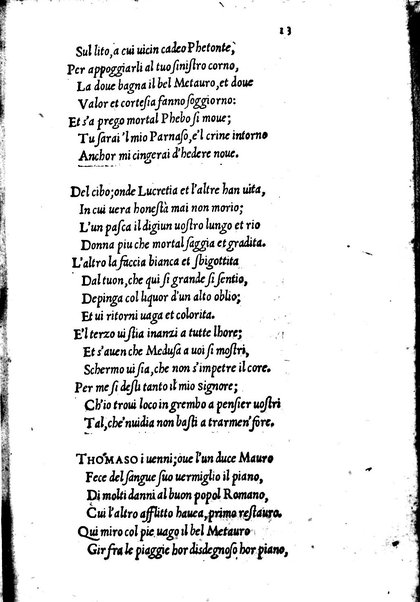 13
Sul lito, a cui uicin cadeo Phetonte,
Per appoggiarli al tuo sinistro corno,
La doue bagna il bel Metauro, et doue
Valor et cortesia fanno soggiorno:
Et s'a prego mortal Phebo si moue;
Tu sarai 'l mio Parnaso, e'l crine intorno
Anchor mi cingerai d'hedere noue.
Del cibo; onde Lucretia et l'altre han uita,
In cui uera honestà mai non morio;
L'un pasca il digiun uostro lungo et rio
Donna piu che mortal saggia et gradita.
L'altro la faccia bianca et sbigottita
Dal tuon, che qui si grande si sentio,
Depinga col liquor d'un alto oblio;
Et ui ritorni uaga et colorita.
E'l terzo ui stia inanzi a tutte lhore;
Et s'auen che Medusa a uoi si mostri,
Schermo ui sia, che non s'impetre il core.
Per me si desti tanto il mio Signore;
Ch'io troui loco in grembo a pensier uostri
Tal, che'nuidia non basti a trarmen' fore.
THOMASO i uenni; oue l'un duce Mauro
Fece del sangue suo uermiglio il piano,
Di molti danni al buon popol Romano,
Cui l'altro afflitto hauea, primo restauro.
Qui miro col pie uago il bel Metauro
Gir fra le piaggie hor disdegnoso hor piano,